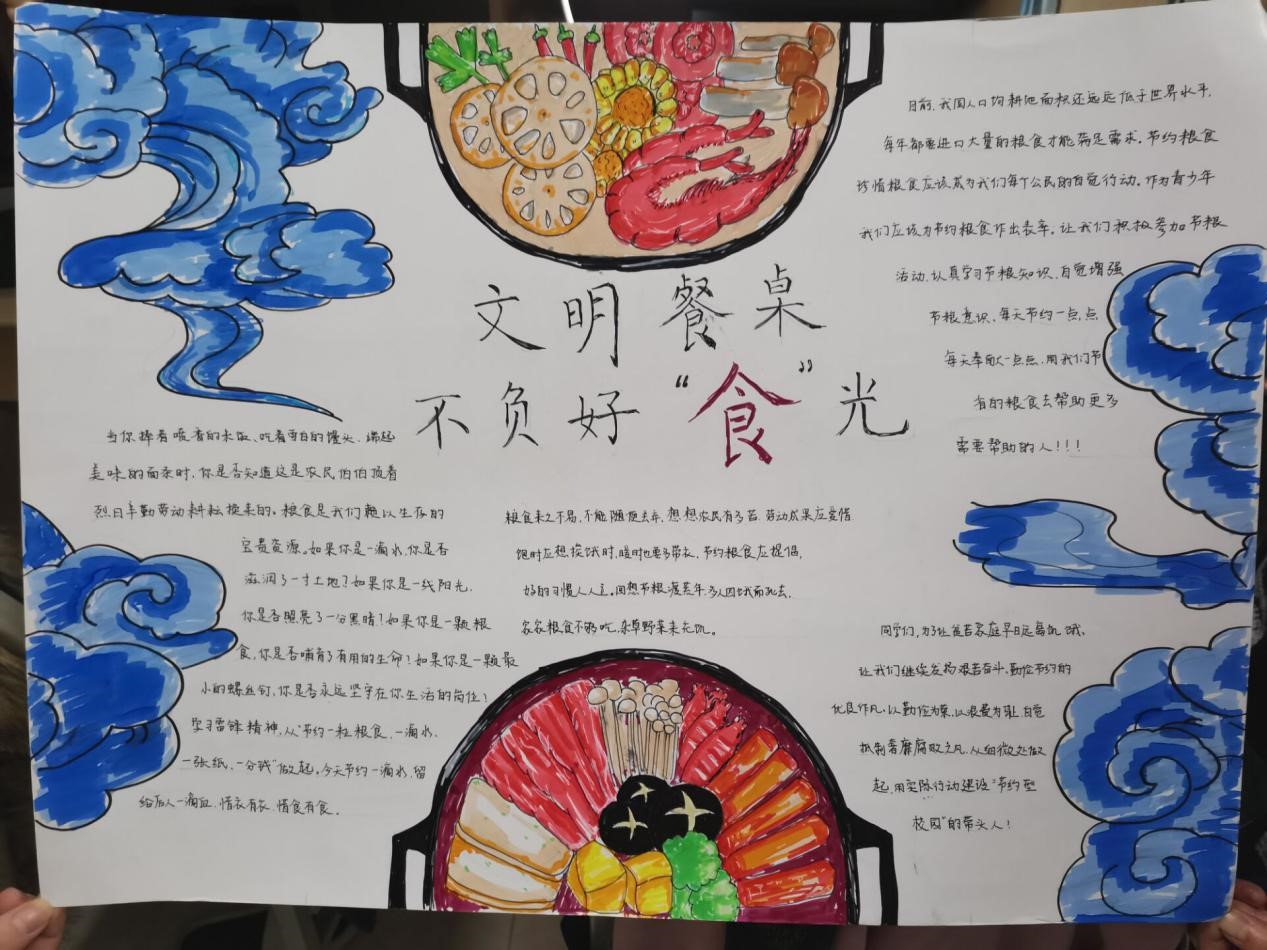 文明餐桌
不负好“食”光
当你捧着喷香的米饭、吃着雪白的馒头、端起
美味的面条时，你是否知道这是农民伯伯顶着
烈日辛勤劳动耕耘换来的。粮食是我们赖以生存的
宝贵资源。如果你是一滴水，你是否
滋润了一寸土地？如果你是一线阳光，
你是否照亮了一分黑暗？如果你是一颗粮
食，你是否哺育了有用的生命！如果你是一颗最
小的螺丝钉，你是否永远坚守在你生活的岗位！
学习雷锋精神，从“节约一粒粮食、一滴水、
一张纸、一分钱”做起。今天节约一滴水，留
给后人一滴血，惜衣有衣，惜食有食。
粮食来之不易，不能随便去弃，想想农民有多苦，劳动成果应爱惜
饱时应想挨饿时，暖时也要多带衣，节约粮食应提倡，
好的习惯人人立。回想节粮渡荒年，多人因饿而死去，
家家粮食不够吃，杂草野菜来充饥。
目前，我国人口均耕地面积还远远低于世界水平，
每年都要进口大量的粮食才能满足需求。节约粮食
珍惜粮食应该成为我们每个公民的自觉行动。作为青少年
我们应该为节约粮食作出表率。让我们积极参加节粮
活动，认真学习节粮知识，自觉增强
节粮意识，每天节约一点点，
每天奉献一点点，用我们节
省的粮食去帮助更多
需要帮助的人！！！
同学们，为了让贫苦家庭早日远离饥饿，
让我们继续发扬艰苦奋斗、勤俭节约的
优良作风，以勤俭为荣，以浪费为耻，自觉
抵制奢靡腐败之风，从细微处做
起，用实际行动建设“节约型
校园”的带头人！